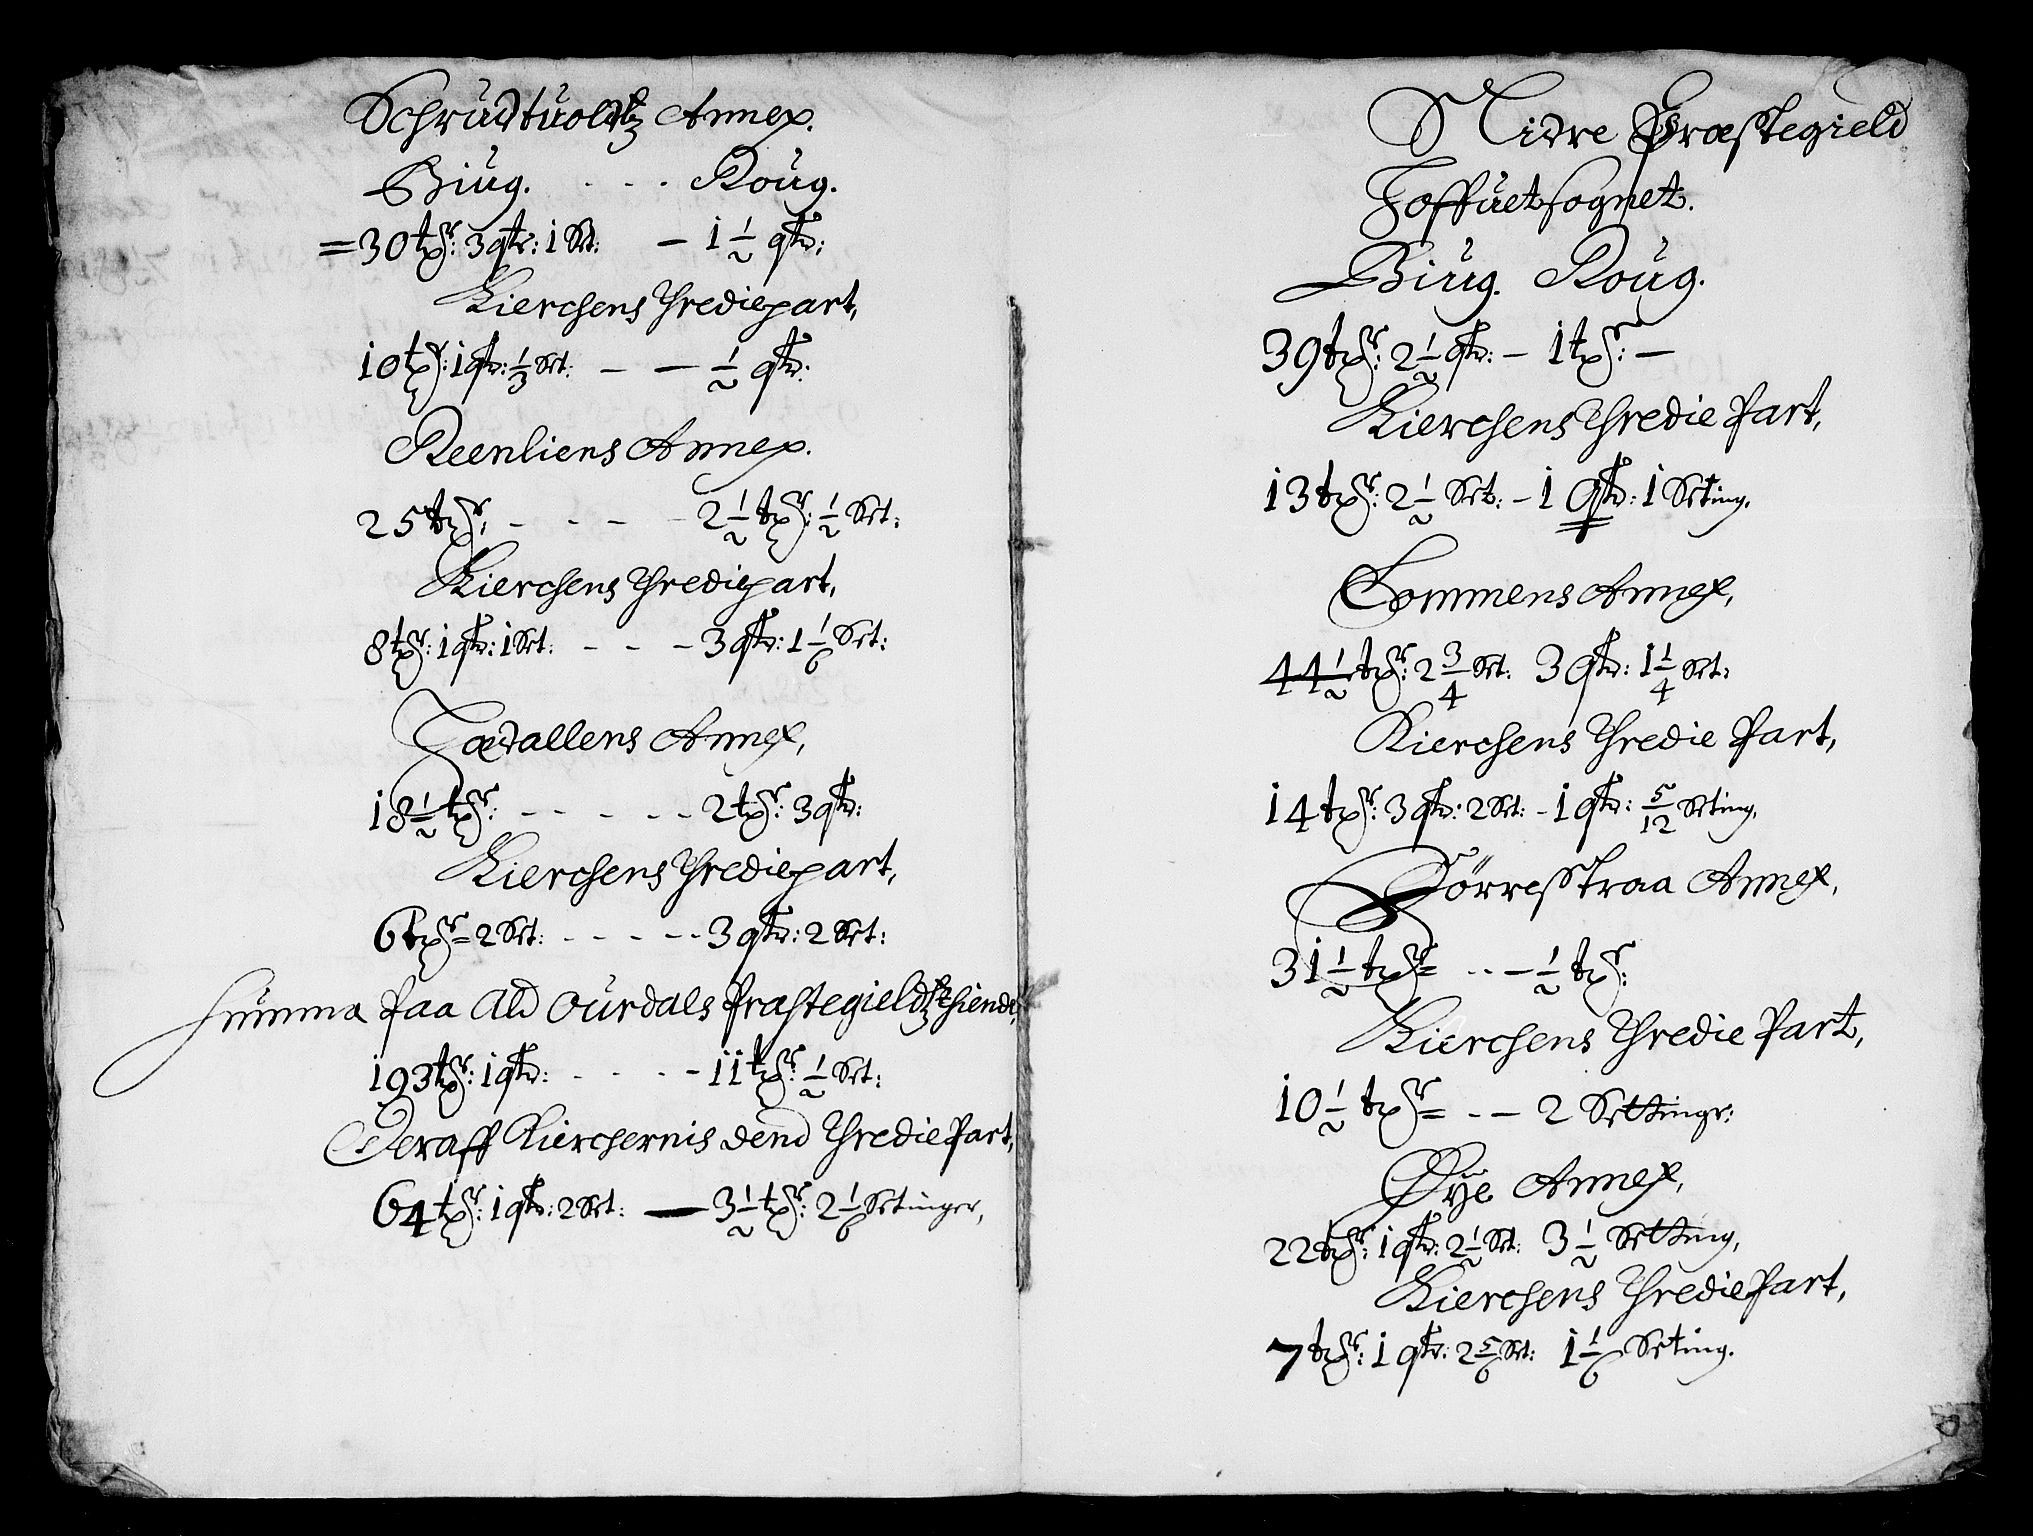 Schrudtuoldtz Annex.
Biug. . . . Roug.
= 30 tgr: 3 qtr: 1 Set: — 1 ½ qtr:
Kierchens thrediepart,
10 tgr: 1 qtr: ⅓ Set: — — ½ qtr:
Reenliens Annex.
25 tgr: - - - - 2 ½ tgr: ½ Set:
Kierchens thrediepart,
8 tgr: 1 qtr: 1 Set: - - - 3 qtr: 1 1/6 Set:
Annex,
18 ½ tgr: - - - - - 2 tgr: 3 qtr:
Kierchens thrediepart,
6 tgr = 2 Set: - - - - - 3 qtr: 2 Set:
Summa paa Ald Ourdals præstegieldtz thiende,
193 tgr: 1 qtr: - - - - 11 tgr: ½ Set:
Deraff Kierchernis dend thredie part,
64 tgr: 1 qtr: 2 Set: — 3 ½ tgr: 2 1/6 Setinger,
Nidre Præstegield
Hoffuetsognet.
Biug. Roug.
39 tgr: 2 ½ qtr: — 1 tgr: —
Kierchens thredie part,
13 tgr: 2 ½ Set: - 1 qtr: 1 Seting.
Lommens Annex,
44 ½ tgr: 2 ¾ Set: 3 qtr: 1 ¼ Set:
Kierchens thredie part,
14 tgr: 3 qtr: 2 Set: - 1 qtr: 5/12 Seting,
Hörresstraa Annex,
31 ½ tgr = - - — ½ tgr:
Kierchens thredie part,
10 ½ tgr = - — 2 Settingr:
Øye Annex,
22 tgr: 1 qtr: 2 ½ Set: 3 ½ Setting,
Kierchens thredie part,
7 tgr: 1 qtr: 2 5/6 Set: 1 1/6 Seting.